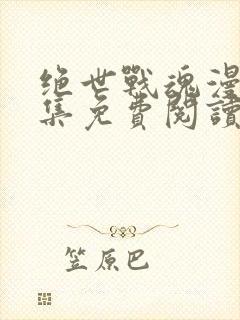 绝世戰魂漫
集免費閱讀
笠原巴